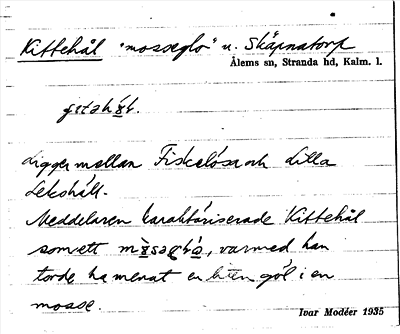 Kittehål "mosseglo" u. Skäpnatorp
Ålems sn, Stranda hd, Kalm. l.
Ligger mellan Fiskelösa och Lilla
Lekshåll.
Meddelaren karaktäriserade Kittehål
som ett, varmed han
torde ha menat en liten göl i en
mosse.
Ivar Modéer 1935